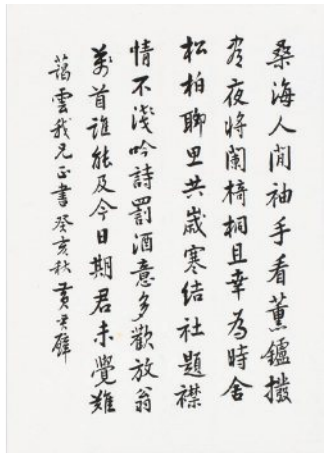 桑海人間袖手看薰鑪撥
盡夜將闌椅桐且幸為時舍
松柏聊思共歲寒結社題襟
情不淺吟詩罰酒意多歡放翁
萬首誰能及今日期君未覺難
藹雲我兄正書癸亥秋黃君璧